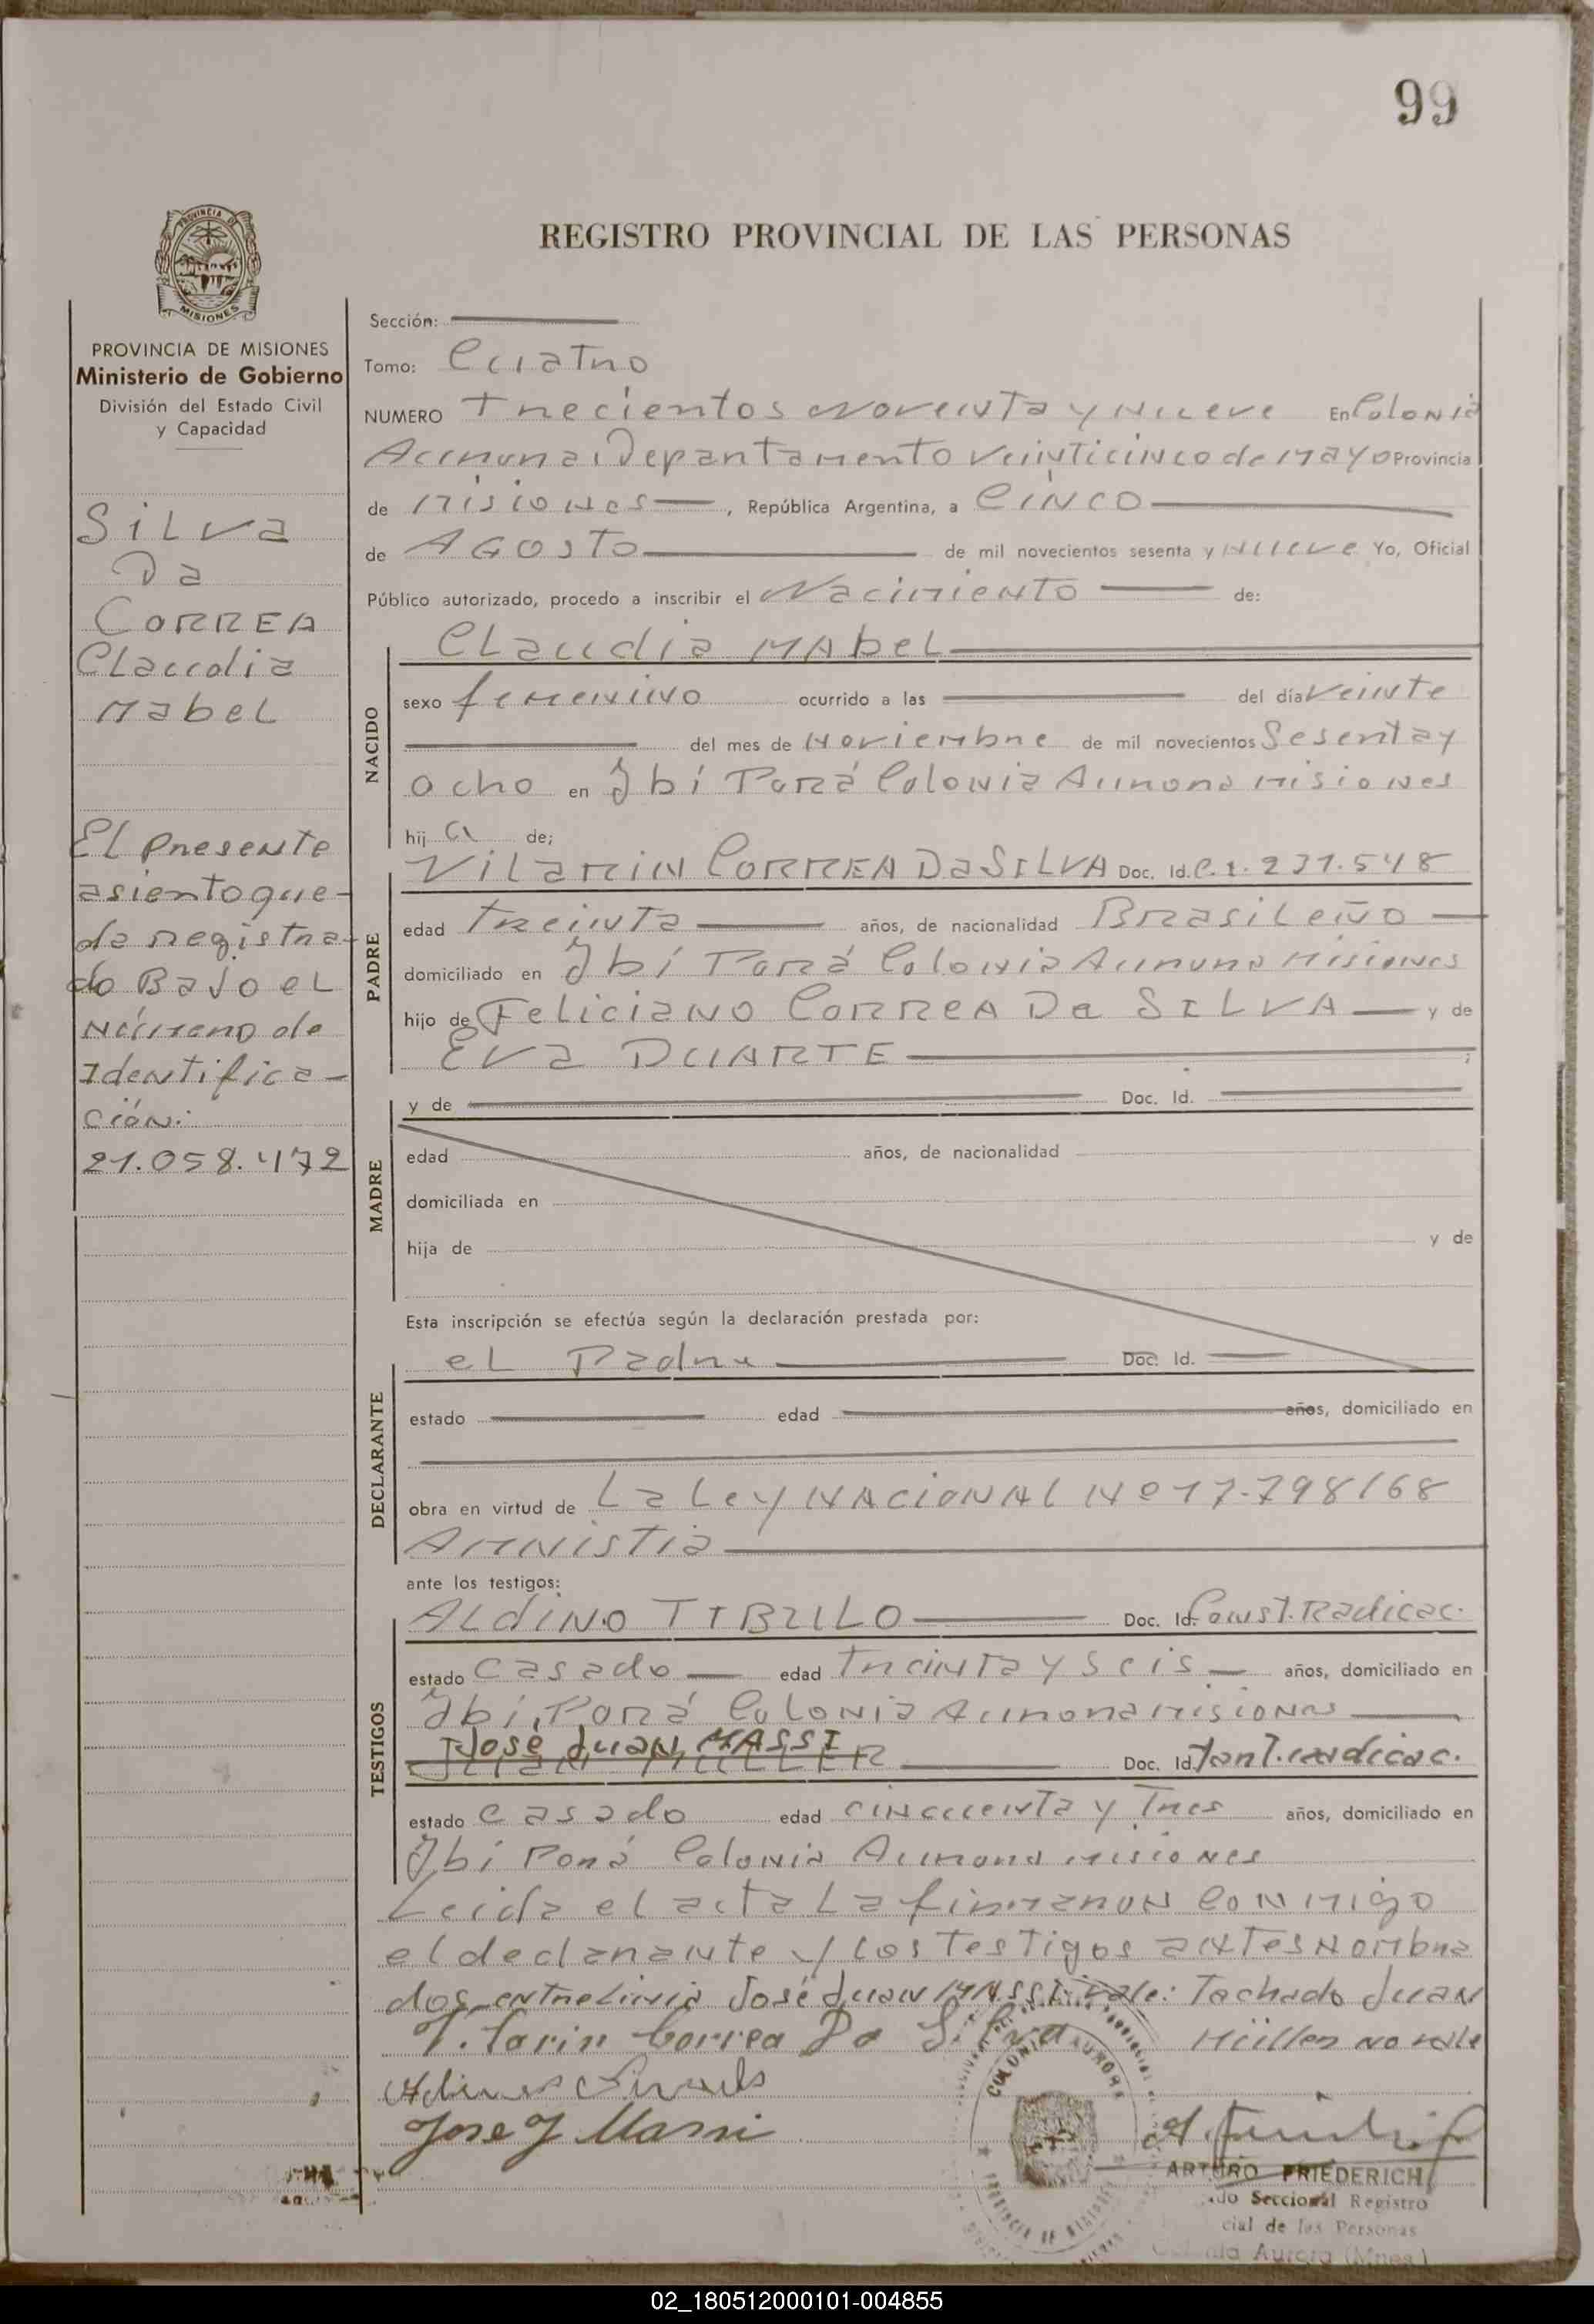 99
REGISTRO PROVINCIAL DE LAS PERSONAS
PROVINCIA
MISIONES
PROVINCIA DE MISIONES
Ministerio de Gobierno
División del Estado Civil
y Capacidad
SILVA
Da
CORREA
Claudia
Mabel
El presente
asiento que-
da registra-
do Bajo el
Número de
Identifica-
ción:
21.058.472
Sección:
Tomo: Cuatro
NUMERO Trecientos Noventa y Nueve En Colonia
Aurora, Departamento Veinticinco de Mayo Provincia
de Misiones, República Argentina, a Cinco
de Agosto de mil novecientos sesenta y Nueve Yo, Oficial
Público autorizado, procedo a inscribir el Nacimiento de:
NACIDO
Claudia Mabel
sexo femenino ocurrido a las del día Veinte
del mes de Noviembre de mil novecientos Sesenta y
ocho en Ibí Porá Colonia Aurora Misiones
hij a de;
PADRE
Vilarin CORREA Da SILVA Doc. Id. C.I. 231.548
edad treinta años, de nacionalidad Brasileño
domiciliado en Ibí Porá Colonia Aurora Misiones
hijo de Feliciano CORREA Da SILVA y de
Eva DUARTE ;
MADRE
y de Doc. Id.
edad años, de nacionalidad
domiciliada en
hija de y de
Esta inscripción se efectúa según la declaración prestada por:
DECLARANTE
el Padre Doc. Id.
estado edad años, domiciliado en
obra en virtud de La Ley NACIONAL Nº 17.798/68
Amnistia
ante los testigos:
TESTIGOS
Aldino Doc. Id. Const. Radicac.
estado Casado edad Treinta y Seis años, domiciliado en
Ibí Porá Colonia Aurora Misiones
José Juan MASSI
Juan MÜLLER Doc. Id. radicac.
estado Casado edad cincuenta y Tres años, domiciliado en
Ibi Porá Colonia Aurora Misiones
Leida el acta La firmaron conmigo
el declarante y los testigos antes Nombra
dos entrelinia José Juan MASSI vale: Tachado Juan
Vilarin Correa Da Silva Müller no vale
Jose J Massi
COLONIA AURORA
PROVINCIA DE MISIONES
ARTURO FRIEDERICH
Seccional Registro
cial de las Personas
Aurora (Mnes.)
02_180512000101-004855